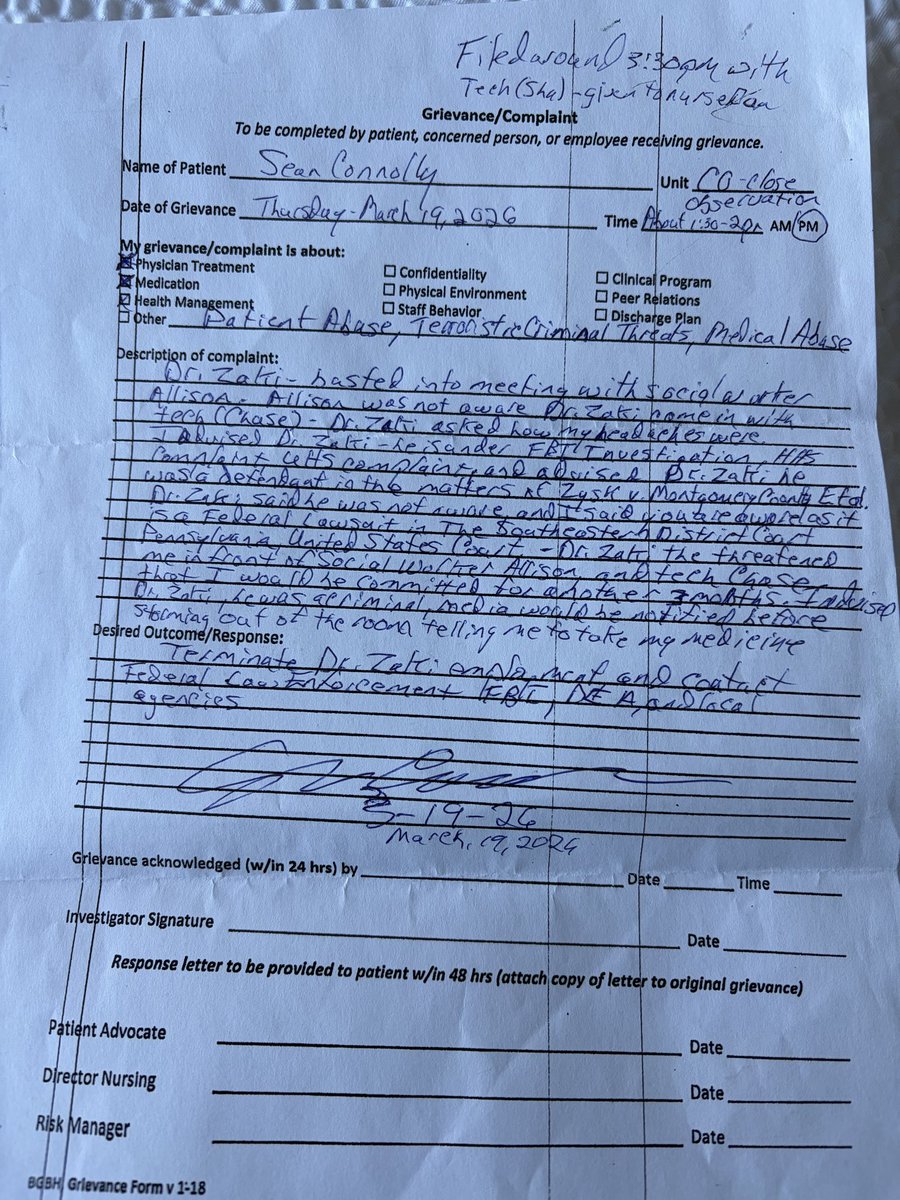 Filed around 3:30pm with
Tech (Sha) - given to nurse
Grievance/Complaint
To be completed by patient, concerned person, or employee receiving grievance.
Name of Patient Sean Connolly
Unit CO-close
observation
Date of Grievance Thursday - March 19, 2026
Time About 1:30-2pm AM/PM
My grievance/complaint is about:
Physician Treatment
Confidentiality
Clinical Program
Medication
Physical Environment
Peer Relations
Health Management
Staff Behavior
Discharge Plan
Other Patient Abuse, Terroristic Criminal Threats, Medical Abuse
Description of complaint:
Dr. Zaki - busted into meeting with social worker
Allison. Allison was not aware Dr. Zaki come in with
tech (Chase) - Dr. Zaki asked how my headaches were.
I advised Dr. Zaki - he is under FBI Investigation, HHS
Complaint, UHS complaint, and advised Dr. Zaki he
was a defendant in the matters of Zysk v. Montgomery County Et al.
Dr. Zaki said he was not aware and I said you are aware as it
is a Federal Lawsuit in The Southeastern District Court
Pennsylvania United States Court - Dr. Zaki the threatened
me in front of Social Worker Allison and tech Chase
that I would be committed for another months. I advised
Dr. Zaki, he was a criminal, media would be notified before
storming out of the room telling me to take my medicine
Desired Outcome/Response:
Terminate Dr. Zaki employment and contact
Federal Law Enforcement FBI, DEA, and local
agencies
3-19-26
March, 19, 2026
Grievance acknowledged (w/in 24 hrs) by Date Time
Investigator Signature Date
Response letter to be provided to patient w/in 48 hrs (attach copy of letter to original grievance)
Patient Advocate Date
Director Nursing Date
Risk Manager Date
BGBH Grievance Form v 1-18